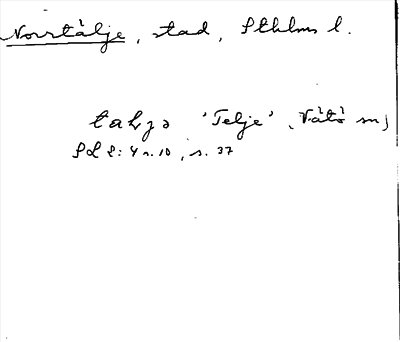 Norrtälje, stad, Sthlms l.
talja 'Telje', Vätö sn)
SOL 2:4 s. 10, s. 37